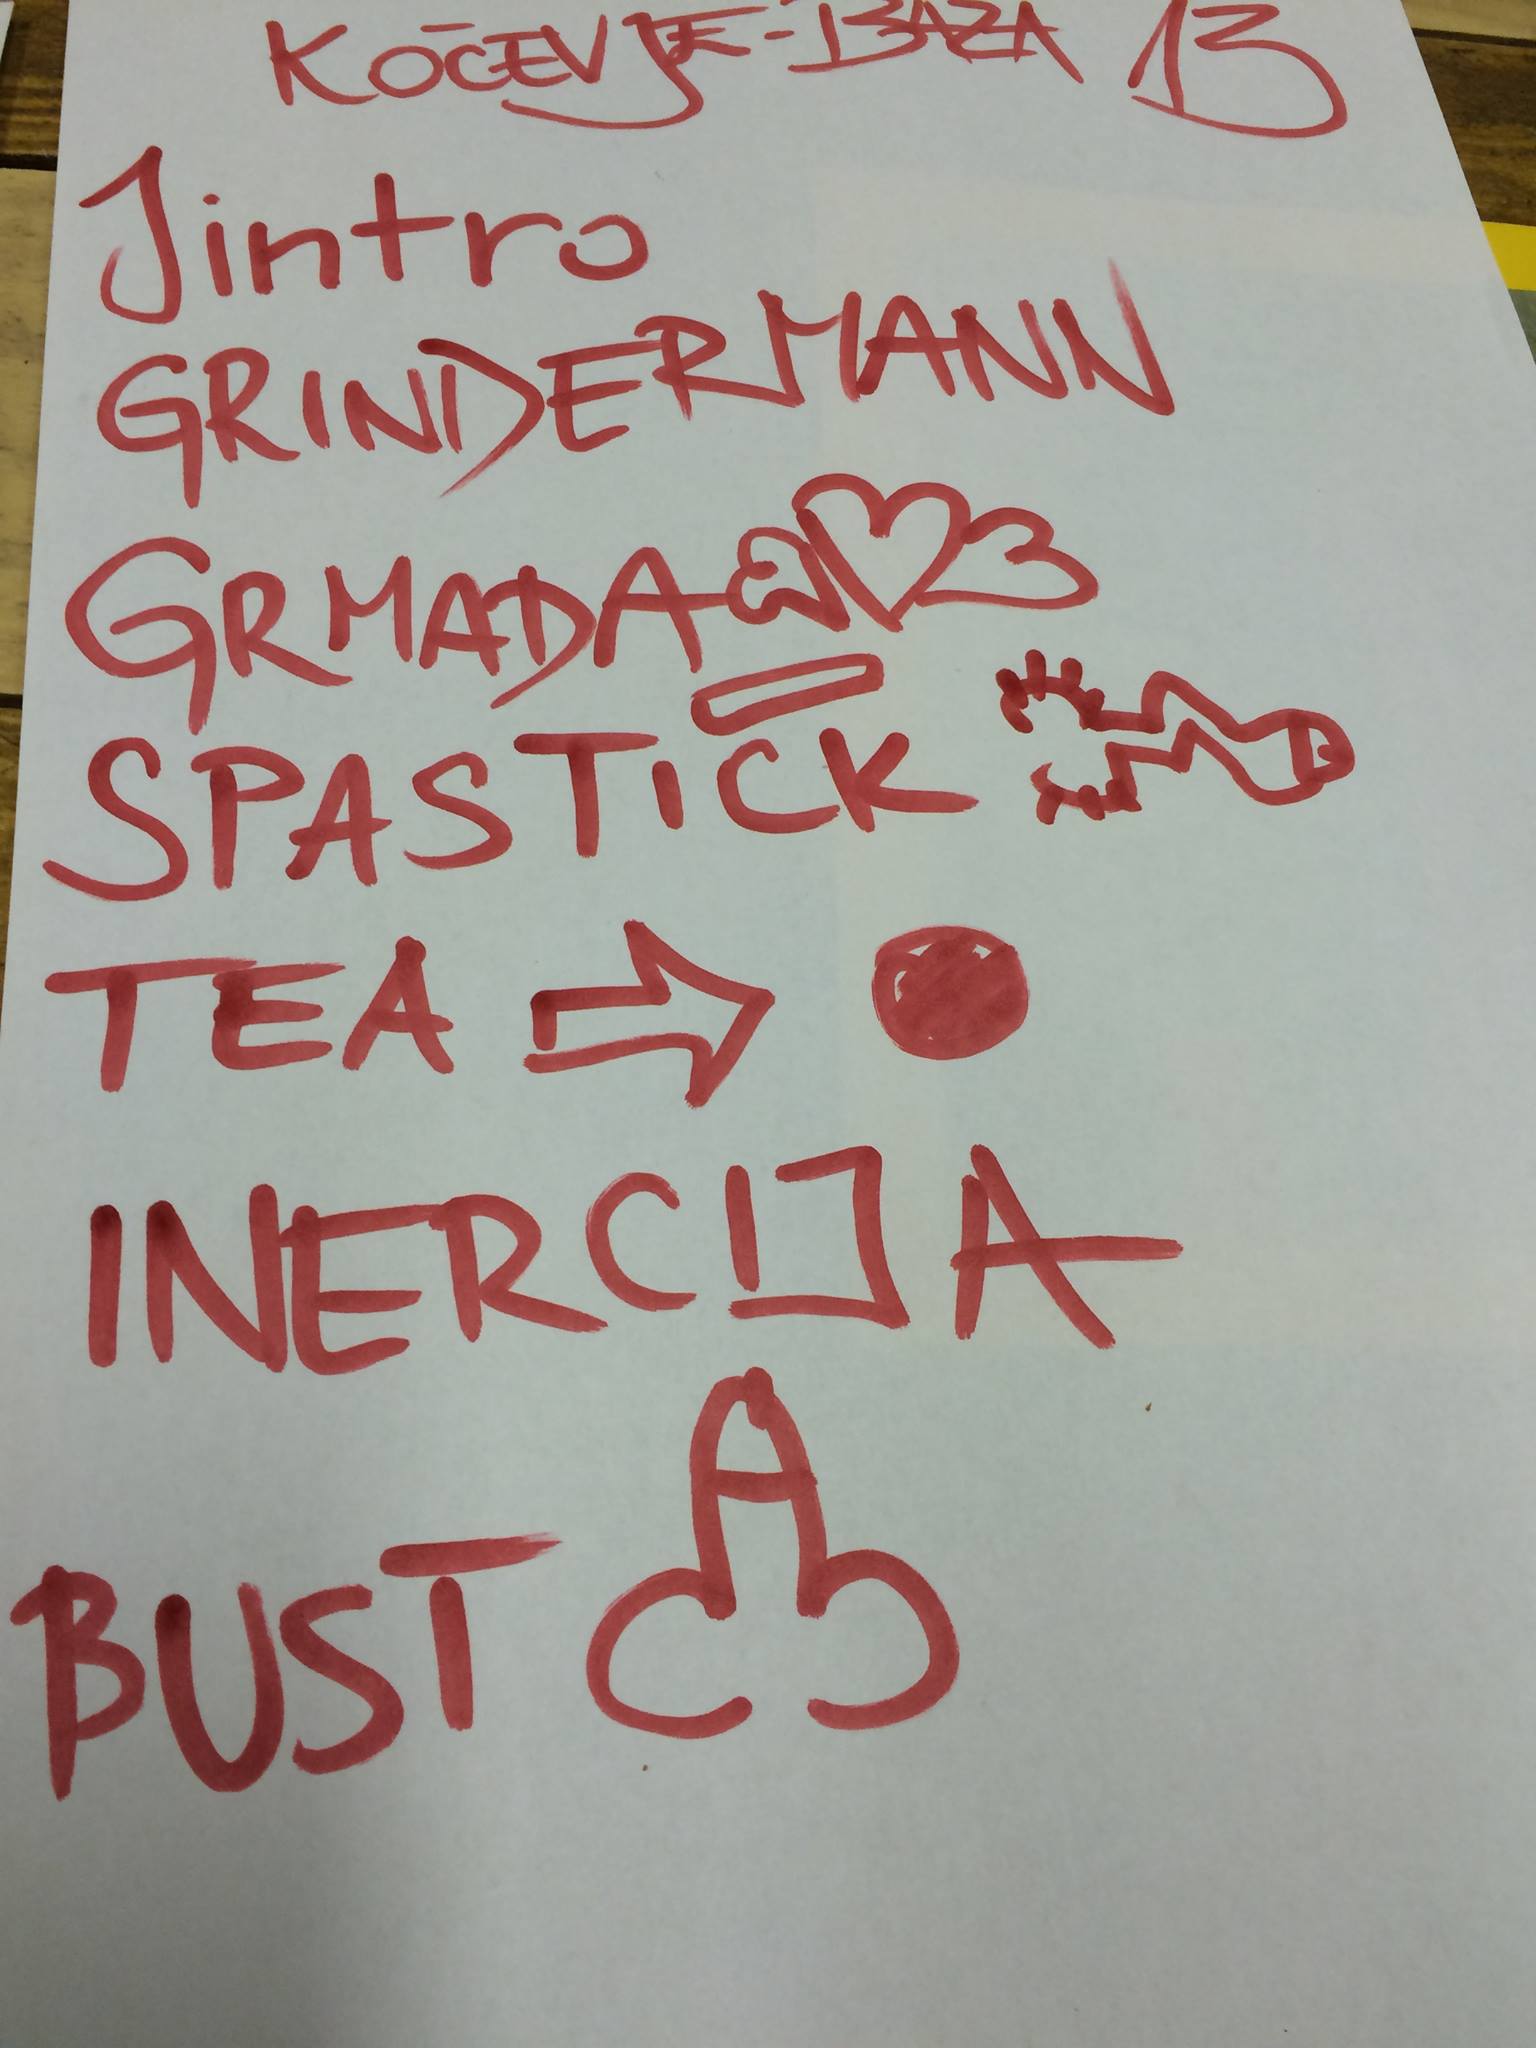 KOČEVJE-BAZA 13
Jintro
GRINDERMANN
GRMADA
SPASTiCK
TEA
INERCIJA
BUST